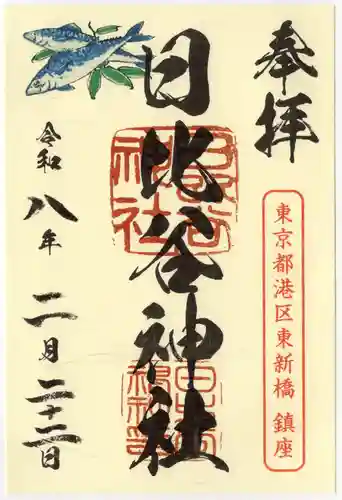 奉拝
東京都港区東新橋 鎮座
日比谷神社
日比谷神社
令和八年 二月二十二日